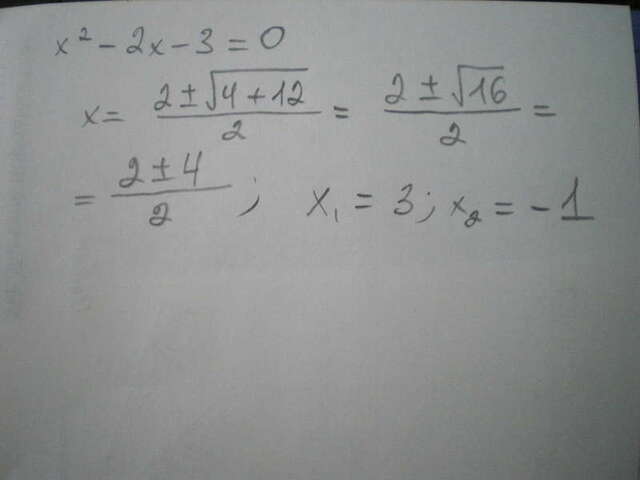 x² - 2x - 3 = 0
x = (2 ± √(4 + 12))/2 = (2 ± √16)/2 =
= (2 ± 4)/2 ; x₁ = 3; x₂ = -1